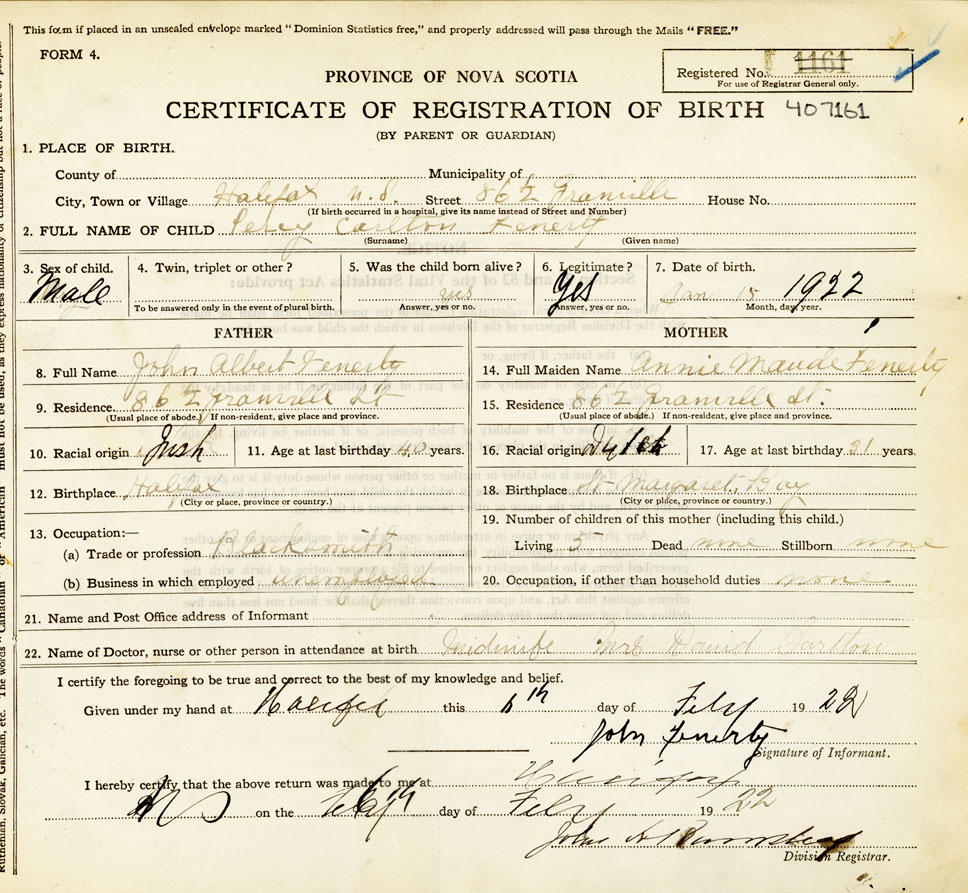 This form if placed in an unsealed envelope marked "Dominion Statistics free," and properly addressed will pass through the Mails "FREE."
FORM 4.
PROVINCE OF NOVA SCOTIA
Registered No. 1161
For use of Registrar General only.
CERTIFICATE OF REGISTRATION OF BIRTH 407161
(BY PARENT OR GUARDIAN)
1. PLACE OF BIRTH.
County of Municipality of
City, Town or Village Halifax N.S. Street 86½ Granville House No.
(If birth occurred in a hospital, give its name instead of Street and Number)
2. FULL NAME OF CHILD Percy Carlton Fenerty
(Surname) (Given name)
3. Sex of child. 4. Twin, triplet or other? 5. Was the child born alive? 6. Legitimate? 7. Date of birth.
Male yes Yes Jan 15 1922
To be answered only in the event of plural birth. Answer, yes or no. Answer, yes or no. Month, day, year.
FATHER MOTHER
8. Full Name John Albert Fenerty
9. Residence 86½ Granvill St
(Usual place of abode.) If non-resident, give place and province.
10. Racial origin Irish 11. Age at last birthday 40 years.
12. Birthplace Halifax
(City or place, province or country.)
13. Occupation:—
(a) Trade or profession Blacksmith
(b) Business in which employed unemployed
14. Full Maiden Name Annie Maude Fenerty
15. Residence 86½ Granvill St.
(Usual place of abode.) If non-resident, give place and province.
16. Racial origin Dutch 17. Age at last birthday 31 years.
18. Birthplace St Margarets Bay
(City or place, province or country.)
19. Number of children of this mother (including this child.)
Living 5 Dead none Stillborn none
20. Occupation, if other than household duties none
21. Name and Post Office address of Informant
22. Name of Doctor, nurse or other person in attendance at birth Midwife Mrs David Carlton
I certify the foregoing to be true and correct to the best of my knowledge and belief.
Given under my hand at Halifax this 6th day of Feby 1922
John Fenerty
Signature of Informant.
I hereby certify that the above return was made to me at Halifax
NS on the day of Feby 1922
John A
Division Registrar.